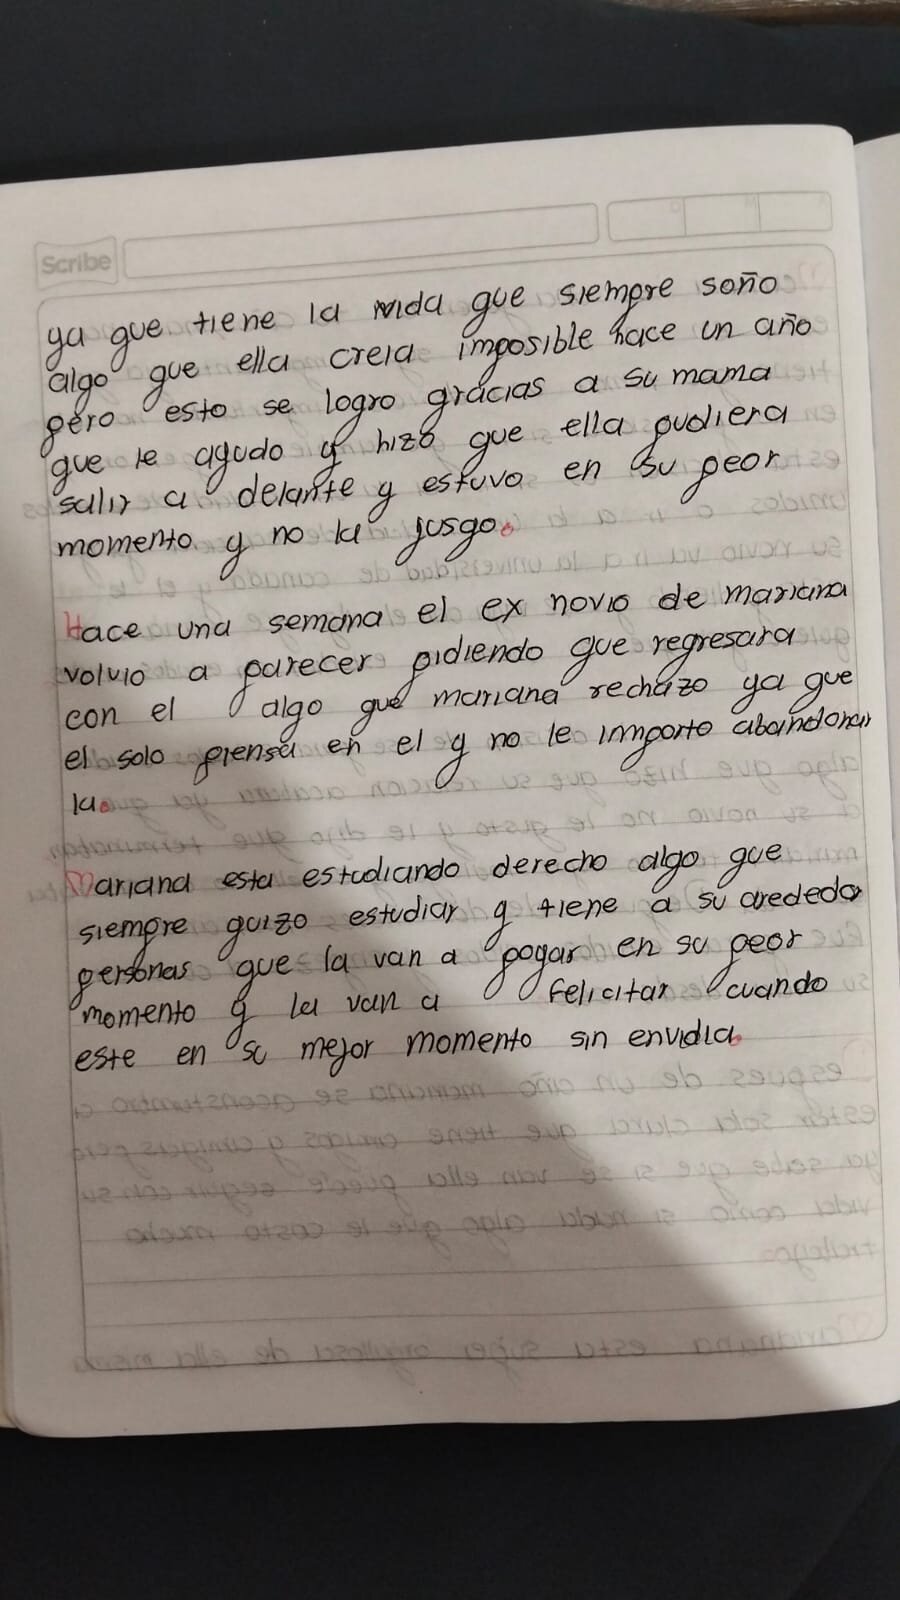 Scribe
ya que tiene la vida que siempre soño
algo que ella creia imposible hace un año
pero esto se logro gracias a su mama
que le ayudo y hizo que ella pudiera
salir a delante y estuvo en su peor
momento y no la jusgo.
Hace una semana el ex novio de mariana
volvio a parecer pidiendo que regresara
con el algo que mariana rechazo ya que
el solo piensa en el y no le importo abandonar
la.
Mariana esta estudiando derecho algo que
siempre quizo estudiar y tiene a su arededor
personas que la van a poyar en su peor
momento y la van a felicitar cuando
este en su mejor momento sin envidia.